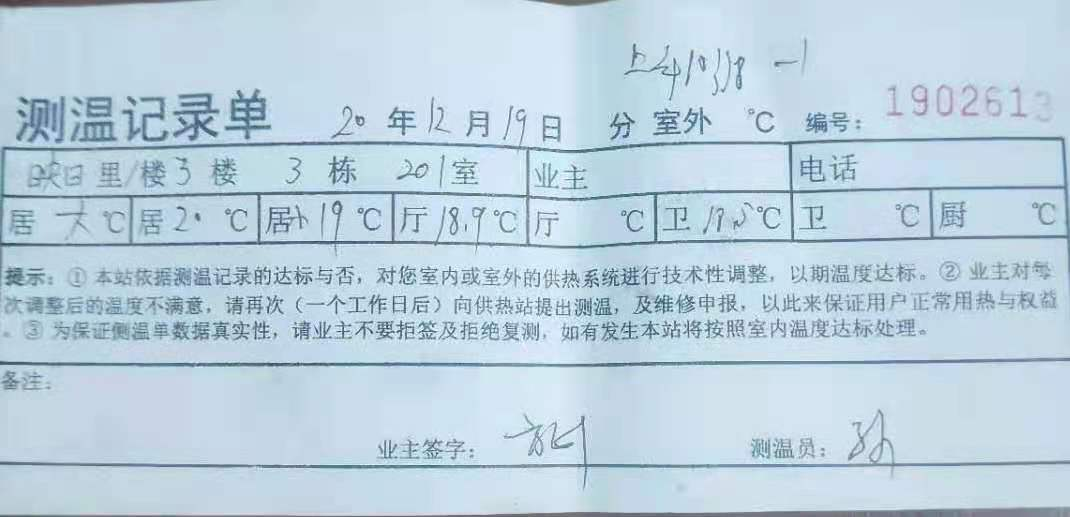 上午10:38 -1
测温记录单 20年12月19日 分 室外 ℃ 编号: 1902613
映日里/楼3楼 3栋 201室 业主 电话
居 大 ℃ 居 20 ℃ 居小19℃ 厅18.9℃ 厅 ℃ 卫 ℃ 卫 ℃ 厨 ℃
提示:①本站依据测温记录的达标与否，对您室内或室外的供热系统进行技术性调整，以期温度达标。②业主对每
次调整后的温度不满意，请再次（一个工作日后）向供热站提出测温，及维修申报，以此来保证用户正常用热与权益
。③为保证侧温单数据真实性，请业主不要拒签及拒绝复测，如有发生本站将按照室内温度达标处理。
备注:
业主签字: 测温员: